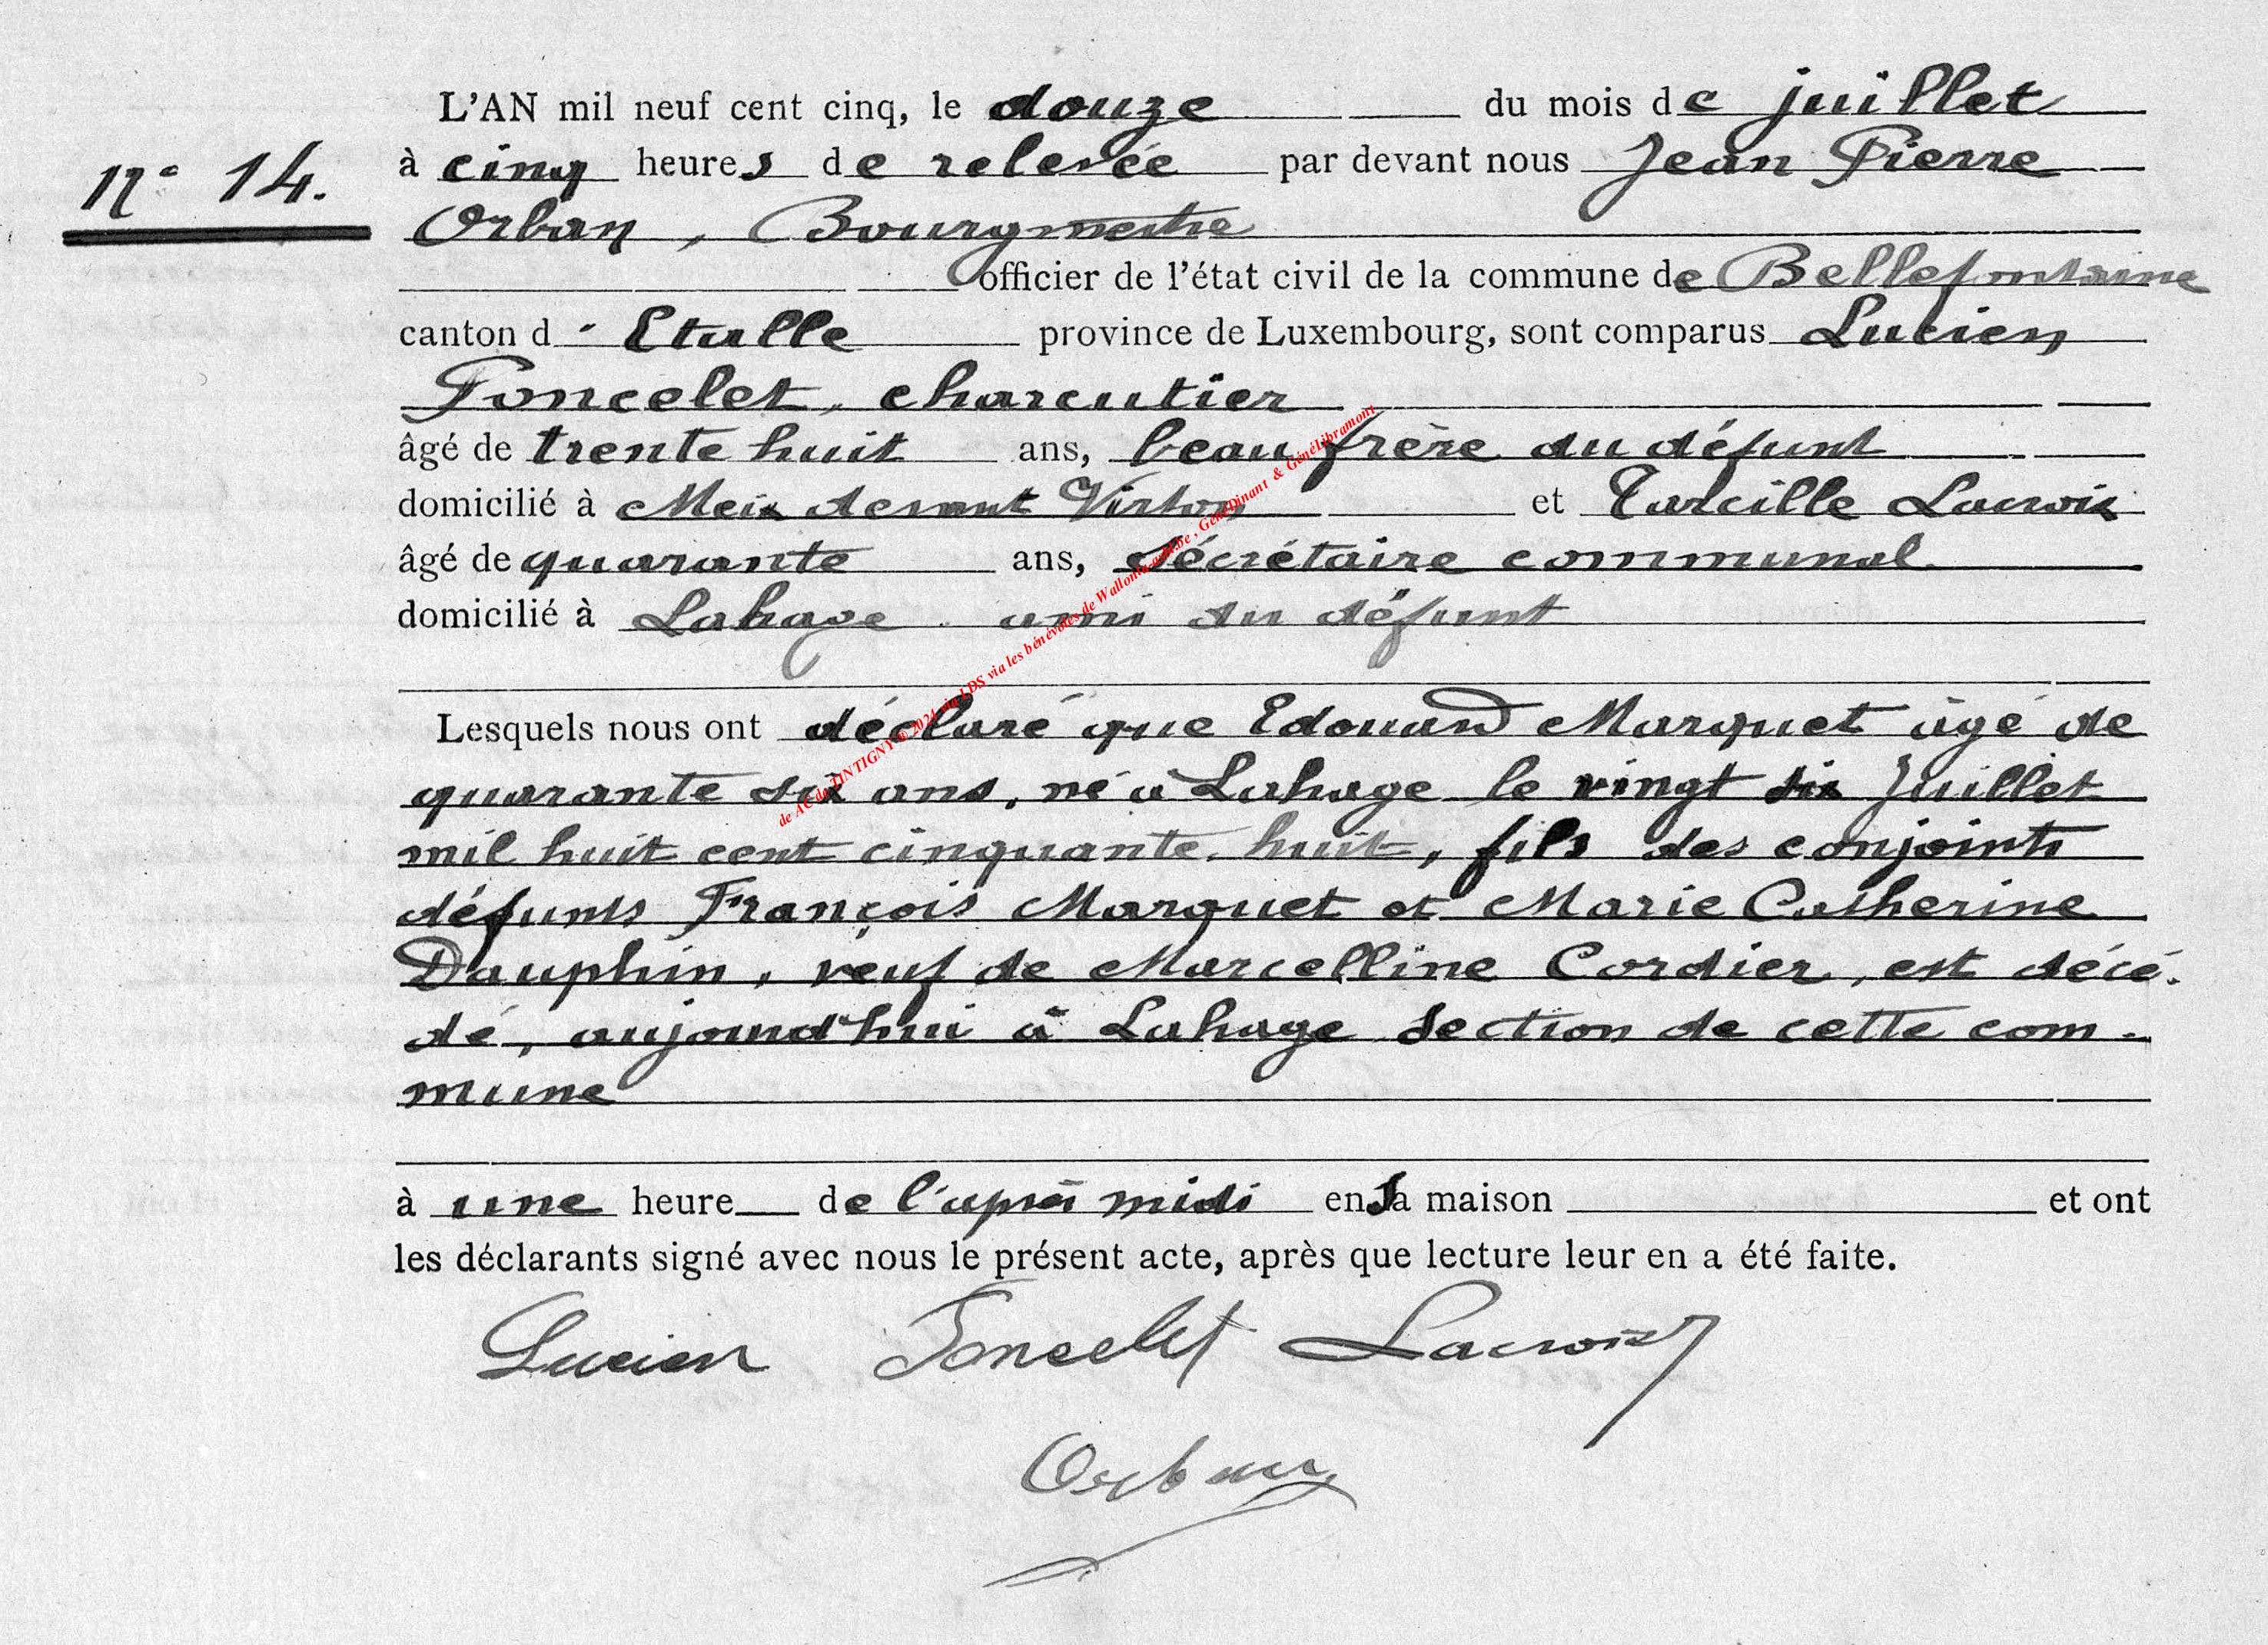 L'AN mil neuf cent cinq, le douze du mois de juillet
N° 14.
à cinq heures de relevée par devant nous Jean Pierre
Orban, Bourgmestre
officier de l'état civil de la commune de Bellefontaine
canton d'Etalle province de Luxembourg, sont comparus Lucien
Poncelet, charcutier
âgé de trente huit ans, beau frère du défunt
domicilié à Meix devant Virton et Tarcille Lacroix
âgé de quarante ans, sécrétaire communal
domicilié à Lahage ami du défunt
Lesquels nous ont déclaré que Edouard Marquet âgé de
quarante six ans, né à Lahage le vingt six Juillet
mil huit cent cinquante huit, fils des conjoints
défunts François Marquet et Marie Catherine
Dauphin, veuf de Marcelline Cordier, est décé-
dé, aujourd'hui à Lahage section de cette com-
mune
à une heure de l'après midi en sa maison et ont
les déclarants signé avec nous le présent acte, après que lecture leur en a été faite.
Lucien Poncelet Lacroix
Orban
de AC de TINTIGNY © 2024 via LDS via les bénévoles de Wallonie , GénéDinant & GénéLibramont